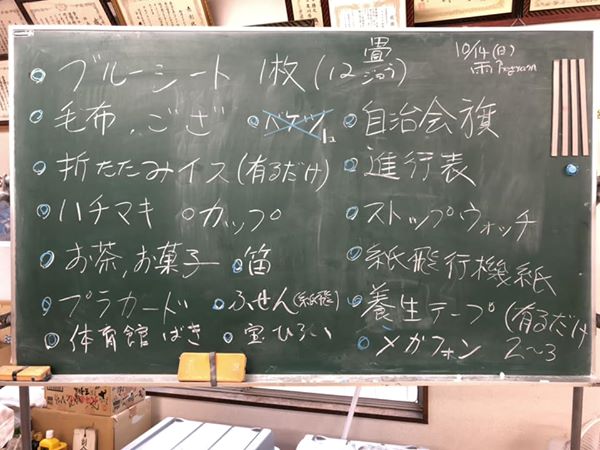 10/14(日)
雨 Program
ブルーシート 1枚(12畳 ジョウ)
毛布、ござ ・バケツ 自治会旗
折たたみイス(有るだけ) 進行表
ハチマキ ○カップ ストップウォッチ
お茶、お菓子 笛 紙飛行機紙
プラカード ふせん(紙飛) 養生テープ(有るだけ
体育館ばき 宝ひろい メガフォン 2〜3